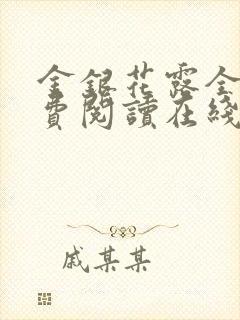 金銀花露全
費閱讀在綫
戚某某